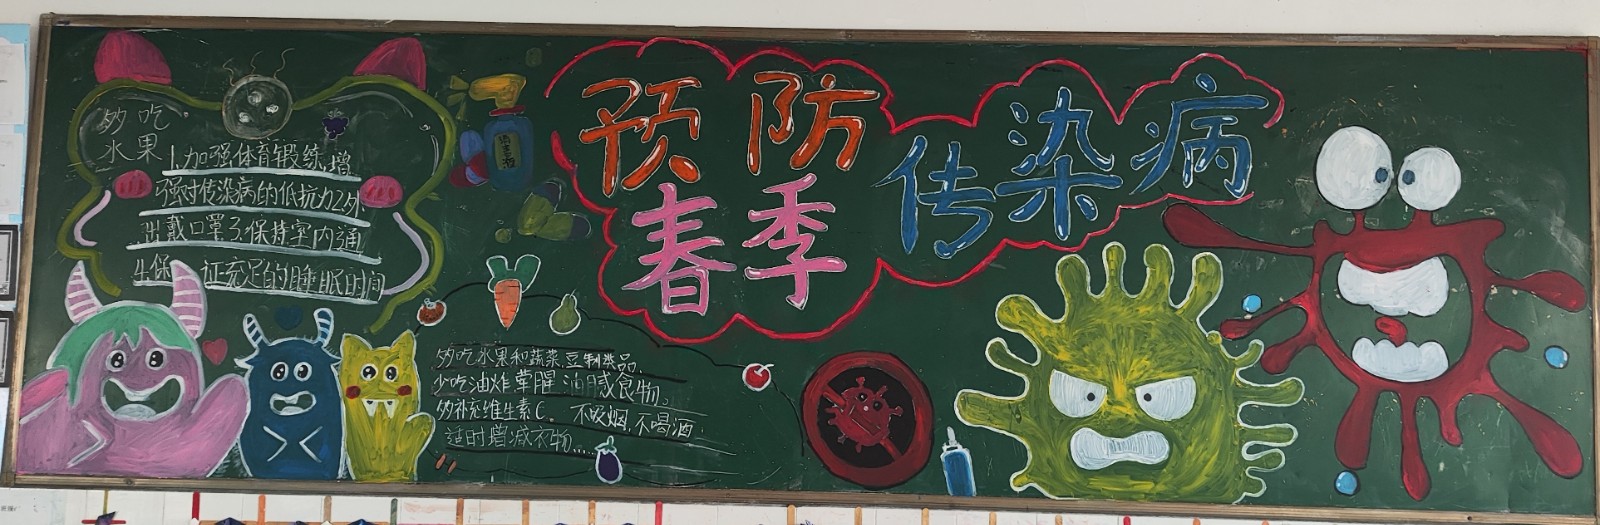 预防
春季
传染病
多吃
水果
1.加强体育锻练,增
强对传染病的低抗力2.外
出戴口罩3.保持室内通
4.保证充足的睡眠时间
消毒液
多吃水果和蔬菜、豆制类品、
少吃油炸荤腥油腻食物。
多补充维生素C。不吸烟,不喝酒
适时增减衣物......